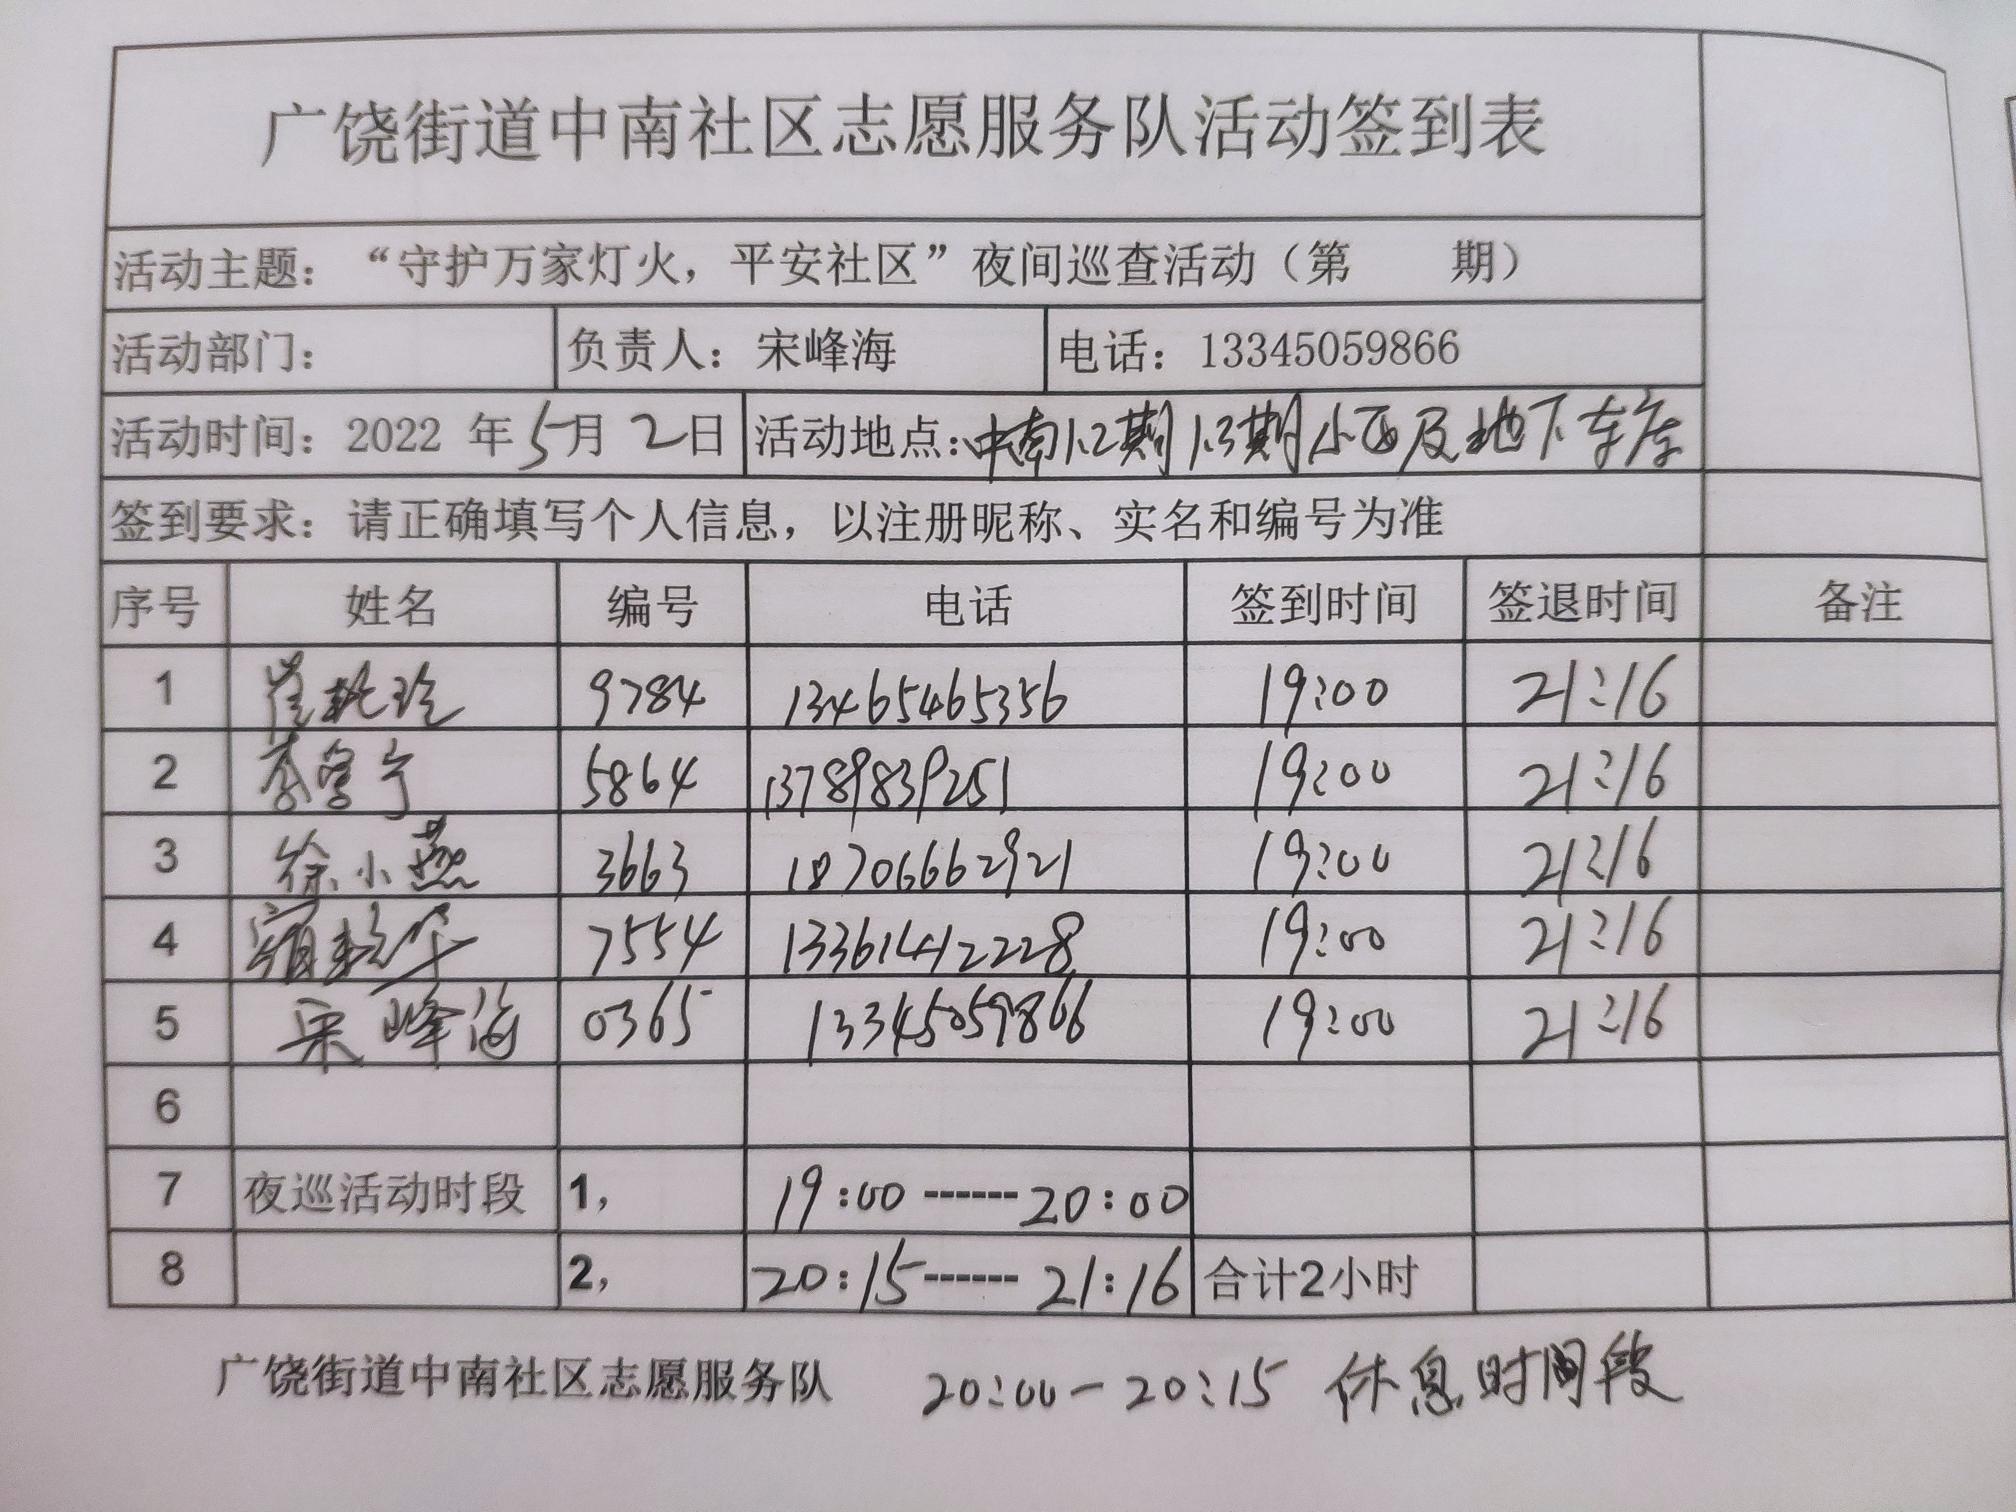 广饶街道中南社区志愿服务队活动签到表
活动主题：“守护万家灯火，平安社区”夜间巡查活动（第 期）
活动部门： 负责人：宋峰海 电话：13345059866
活动时间：2022 年 5月 2日 活动地点：中南1.2期1.3期小区及地下车库
签到要求：请正确填写个人信息，以注册昵称、实名和编号为准
序号 姓名 编号 电话 签到时间 签退时间 备注
1 9784 13465465356 19:00 21:16
2 5864 13789839251 19:00 21:16
3 徐小燕 3663 18706662921 19:00 21:16
4 7554 13361412228 19:00 21:16
5 宋峰海 0365 13345059866 19:00 21:16
6
7 夜巡活动时段 1， 19:00------20:00
8 2， 20:15------21:16 合计2小时
广饶街道中南社区志愿服务队 20:00-20:15 休息时间段